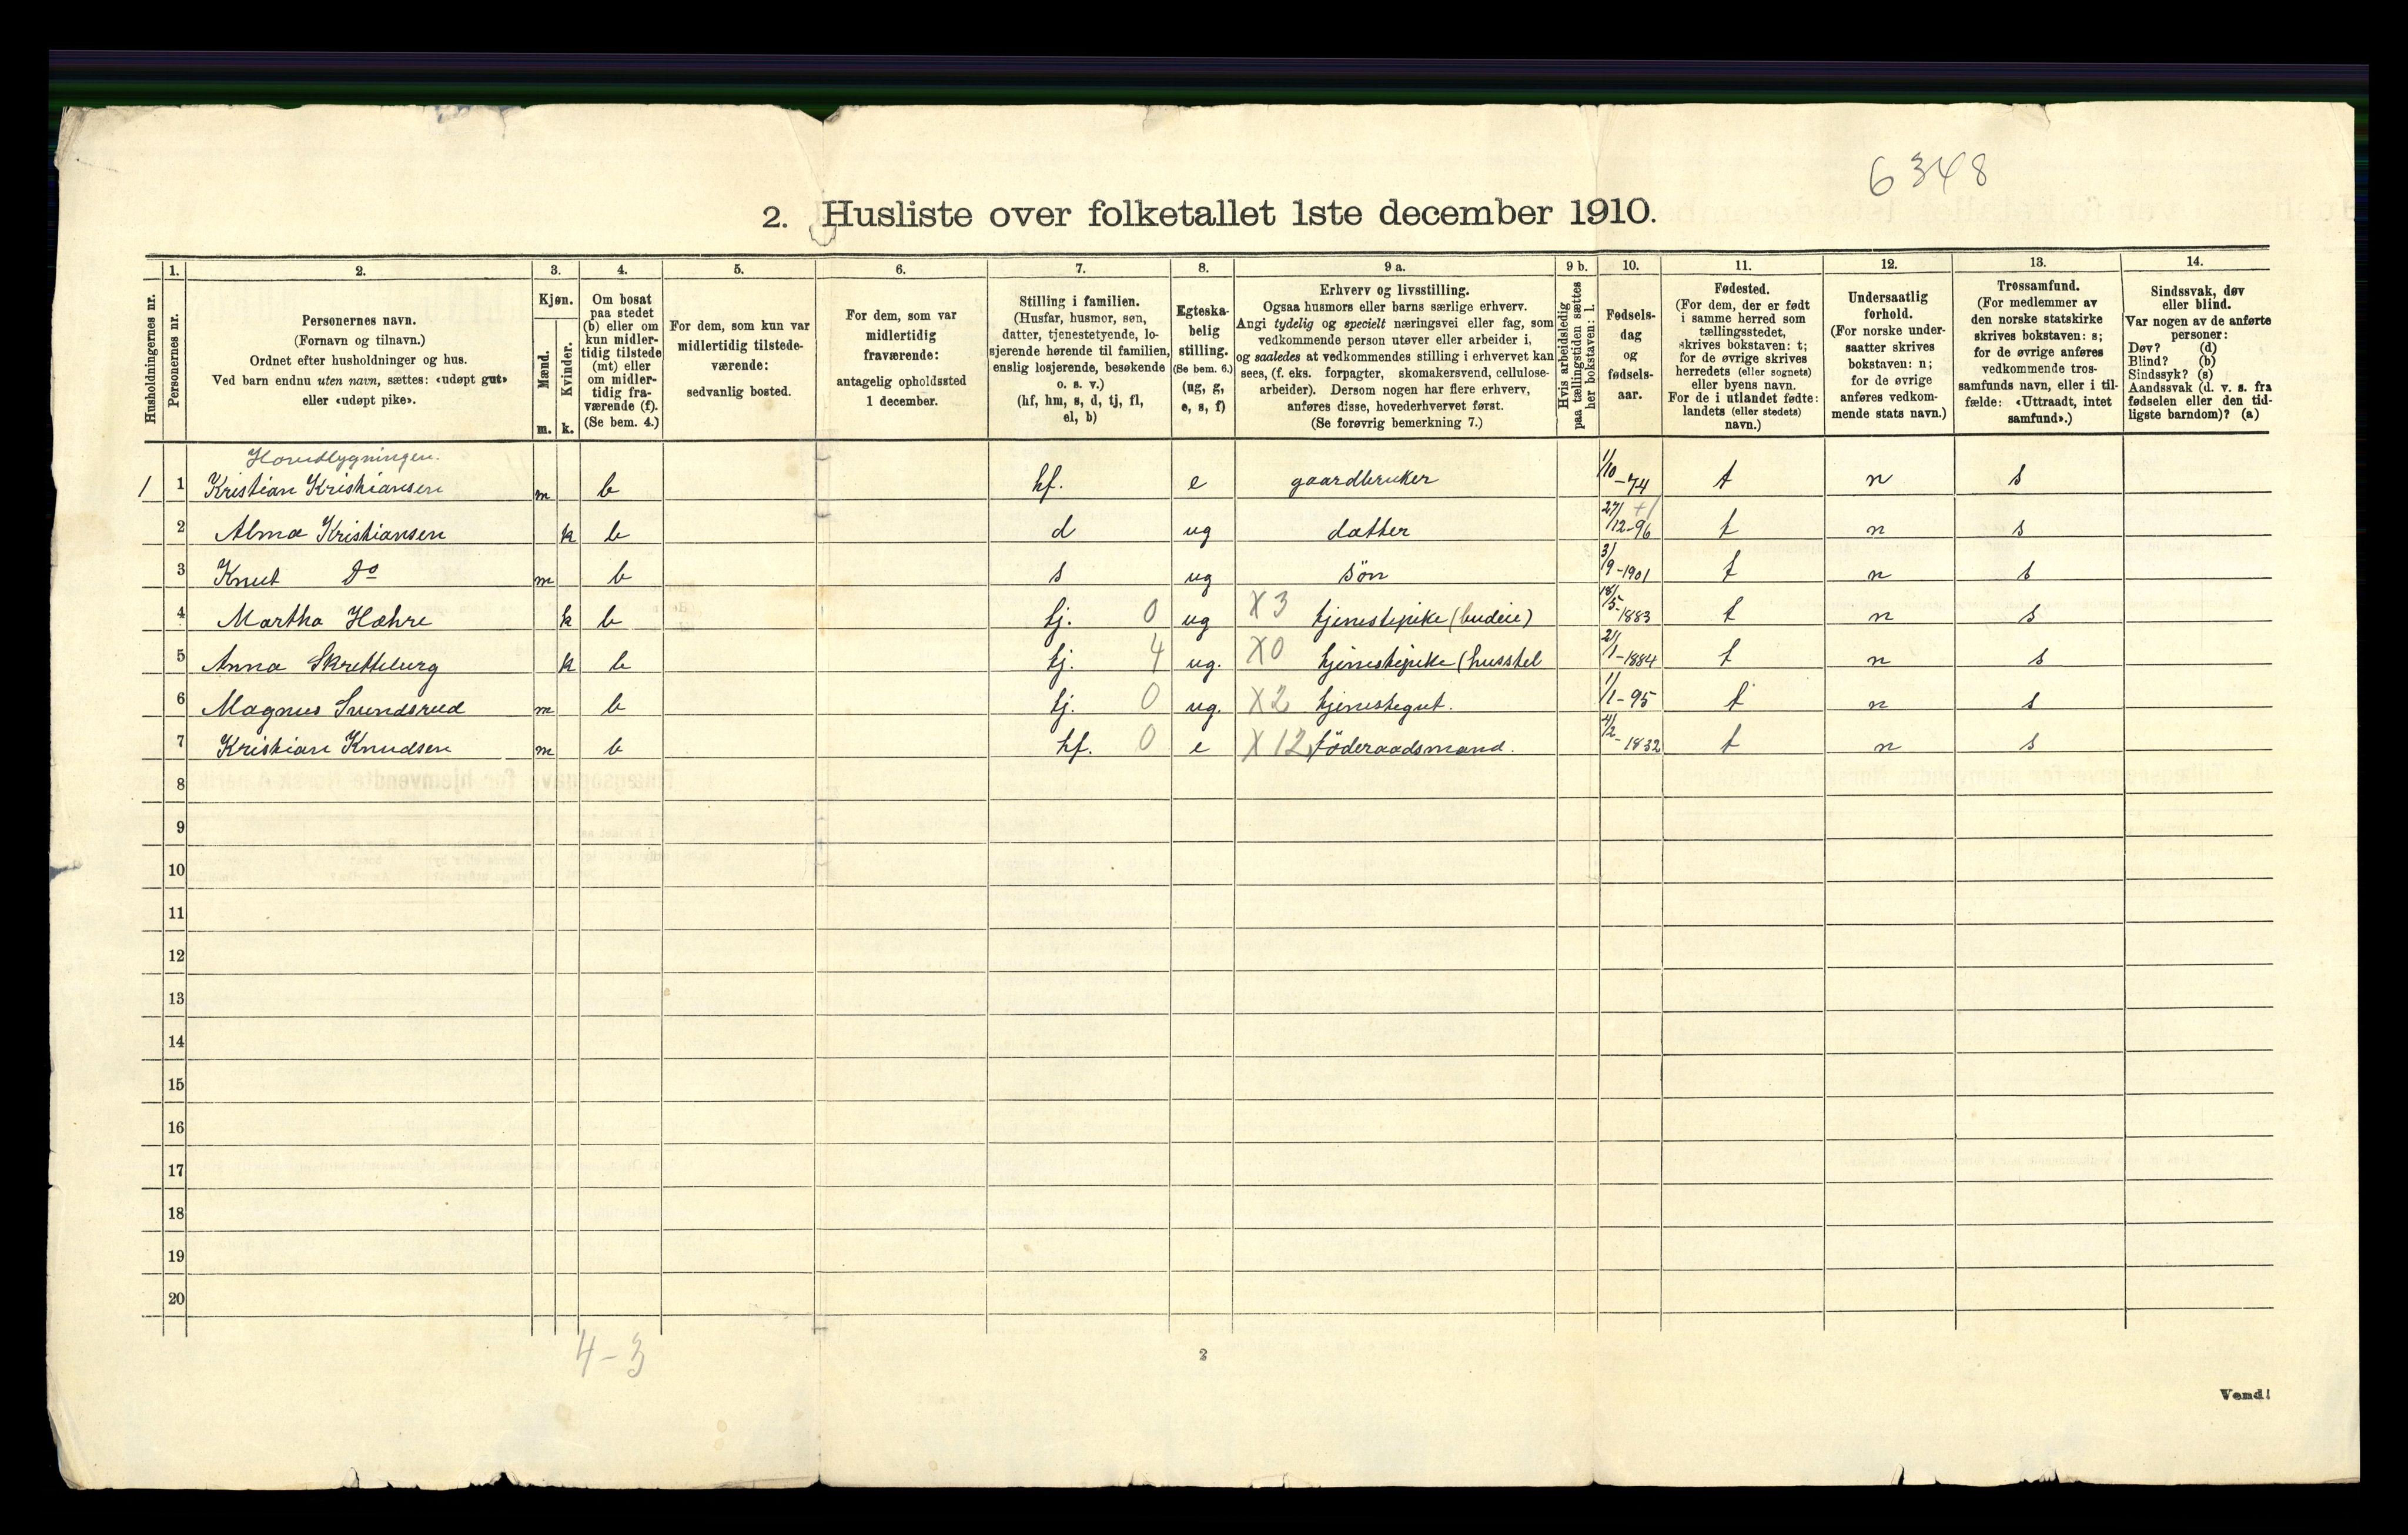 6348
2. Husliste over folketallet 1ste december 1910.
Husholdningernes nr.
1.
Personernes nr.
2.
Personernes navn.
(Fornavn og tilnavn.)
Ordnet efter husholdninger og hus.
Ved barn endnu uten navn, sættes: «udøpt gut»
eller «udøpt pike».
3.
Kjøn.
Mænd.
Kvinder.
m. k.
4.
Om bosat
paa stedet
(b) eller om
kun midler-
tidig tilstede
(mt) eller
om midler-
tidig fra-
værende (f).
(Se bem. 4.)
5.
For dem, som kun var
midlertidig tilstede-
værende:
sedvanlig bosted.
6.
For dem, som var
midlertidig
fraværende:
antagelig opholdssted
1 december.
7.
Stilling i familien.
(Husfar, husmor, søn,
datter, tjenestetyende, lo-
sjerende hørende til familien,
enslig losjerende, besøkende
o. s. v.)
(hf, hm, s, d, tj, fl,
el, b)
8.
Egteska-
belig
stilling.
(Se bem. 6.)
(ug, g,
e, s, f)
9 a.
Erhverv og livsstilling.
Ogsaa husmors eller barns særlige erhverv.
Angi tydelig og specielt næringsvei eller fag, som
vedkommende person utøver eller arbeider i,
og saaledes at vedkommendes stilling i erhvervet kan
sees, (f. eks. forpagter, skomakersvend, cellulose-
arbeider). Dersom nogen har flere erhverv,
anføres disse, hovederhvervet først.
(Se forøvrig bemerkning 7.)
9 b.
Hvis arbeidsledig
paa tællingstiden sættes
her bokstaven: l.
10.
Fødsels-
dag
og
fødsels-
aar.
11.
Fødested.
(For dem, der er født
i samme herred som
tællingsstedet,
skrives bokstaven: t;
for de øvrige skrives
herredets (eller sognets)
eller byens navn.
For de i utlandet fødte:
landets (eller stedets)
navn.)
12.
Undersaatlig
forhold.
(For norske under-
saatter skrives
bokstaven: n;
for de øvrige
anføres vedkom-
mende stats navn.)
13.
Trossamfund.
(For medlemmer av
den norske statskirke
skrives bokstaven: s;
for de øvrige anføres
vedkommende tros-
samfunds navn, eller i til-
fælde: «Uttraadt, intet
samfund».)
14.
Sindssvak, døv
eller blind.
Var nogen av de anførte
personer:
Døv? (d)
Blind? (b)
Sindssyk? (s)
Aandssvak (d. v. s. fra
fødselen eller den tid-
ligste barndom)? (a)
Hovedbygningen.
1 1 Kristian Kristiansen m b hf. e gaardbruker 1/10-74 t n s
2 Alma Kristiansen k b d ug datter 27/12-96 t n s
3 Knut Do m b s ug søn 3/9-1901 t n s
4 Martha Hæhre k b tj. 0 ug X3 tjenestepike (budeie) 18/5-1883 t n s
5 Anna Skretteberg k b tj. 4 ug. X0 tjenestepike (husstel 21/1-1884 t n s
6 Magnus Svendsrud m b tj. 0 ug. X2 tjenestegut. 1/1-95 t n s
7 Kristian Knudsen m b hf. 0 e X12 föderaadsmand. 4/2-1832 t n s
8
9
10
11
12
13
14
15
16
17
18
19
20
4-3
2
Vend!